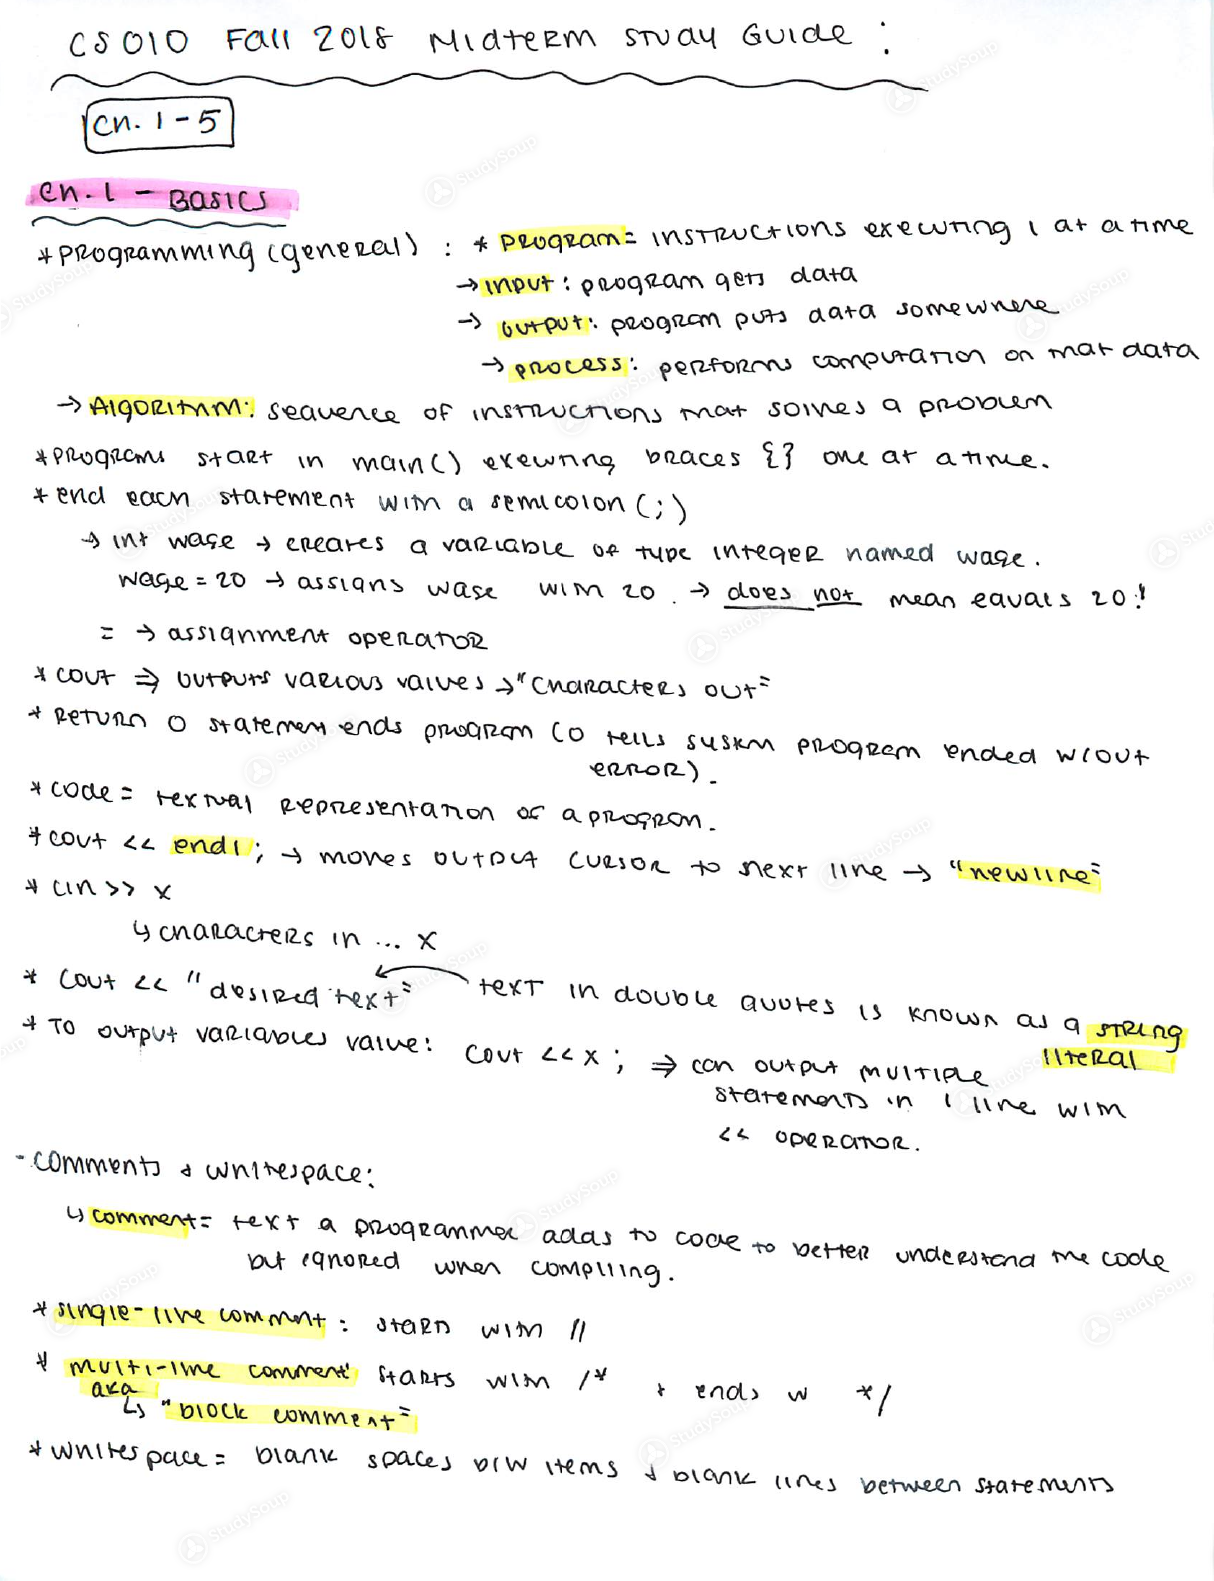 CS 010 Fall 2018 Midterm Study Guide :
Ch. 1 - 5
Ch. 1 - Basics
* Programming (general) : * Program = instructions executing 1 at a time
→ input : program gets data
→ output : program puts data somewhere
→ process : performs computation on that data
→ Algorithm : sequence of instructions that solves a problem
* Programs start in main() executing braces {} one at a time.
* end each statement with a semicolon (;)
→ int wage → creates a variable of type integer named wage.
wage = 20 → assigns wage with 20. → does not mean equals 20!
= → assignment operator
* cout ⇒ outputs various values → "characters out"
* Return 0 statement ends program (0 tells system program ended w/out
error).
* code = textual representation of a program.
* cout << endl ; → moves output cursor to next line → "newline"
* cin >> x
↳ characters in ... x
* cout << "desired text" text in double quotes is known as a string
literal
* To output variables value : cout << x ; ⇒ can output multiple
statements in 1 line with
<< operator.
- comments & whitespace :
↳ comment = text a programmer adds to code to better understand the code
but ignored when compiling.
* single-line comment : starts with //
* multi-line comment starts with /* + ends w */
aka
↳ "block comment"
* whitespace = blank spaces b/w items & blank lines between statements
StudySoup